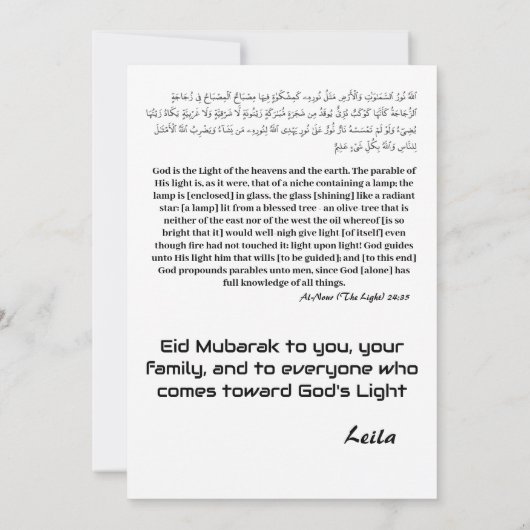 ٱللَّهُ نُورُ ٱلسَّمَٰوَٰتِ وَٱلْأَرْضِ مَثَلُ نُورِهِۦ كَمِشْكَوٰةٍ فِيهَا مِصْبَاحٌ ٱلْمِصْبَاحُ فِى زُجَاجَةٍ
ٱلزُّجَاجَةُ كَأَنَّهَا كَوْكَبٌ دُرِّىٌّ يُوقَدُ مِن شَجَرَةٍ مُّبَٰرَكَةٍ زَيْتُونَةٍ لَّا شَرْقِيَّةٍ وَلَا غَرْبِيَّةٍ يَكَادُ زَيْتُهَا
يُضِىٓءُ وَلَوْ لَمْ تَمْسَسْهُ نَارٌ نُّورٌ عَلَىٰ نُورٍ يَهْدِى ٱللَّهُ لِنُورِهِۦ مَن يَشَآءُ وَيَضْرِبُ ٱللَّهُ ٱلْأَمْثَٰلَ
لِلنَّاسِ وَٱللَّهُ بِكُلِّ شَىْءٍ عَلِيمٌ
God is the Light of the heavens and the earth. The parable of
His light is, as it were, that of a niche containing a lamp; the
lamp is [enclosed] in glass, the glass [shining] like a radiant
star: [a lamp] lit from a blessed tree - an olive-tree that is
neither of the east nor of the west the oil whereof [is so
bright that it] would well-nigh give light [of itself] even
though fire had not touched it: light upon light! God guides
unto His light him that wills [to be guided]; and [to this end]
God propounds parables unto men, since God [alone] has
full knowledge of all things.
Al-Nour (The Light) 24:35
Eid Mubarak to you, your
family, and to everyone who
comes toward God's Light
Leila